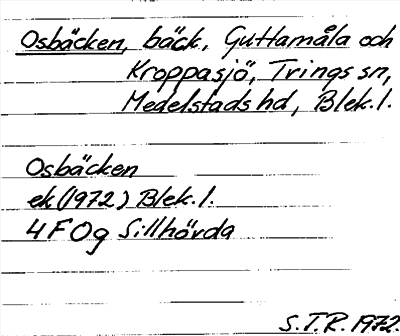 Osbäcken, bäck, Guttamåla och
Kroppasjö, Trings sn,
Medelstads hd, Blek.l.
Osbäcken
ek (1972) Blek.l.
4F0g Sillhövda
S.T.R. 1972.